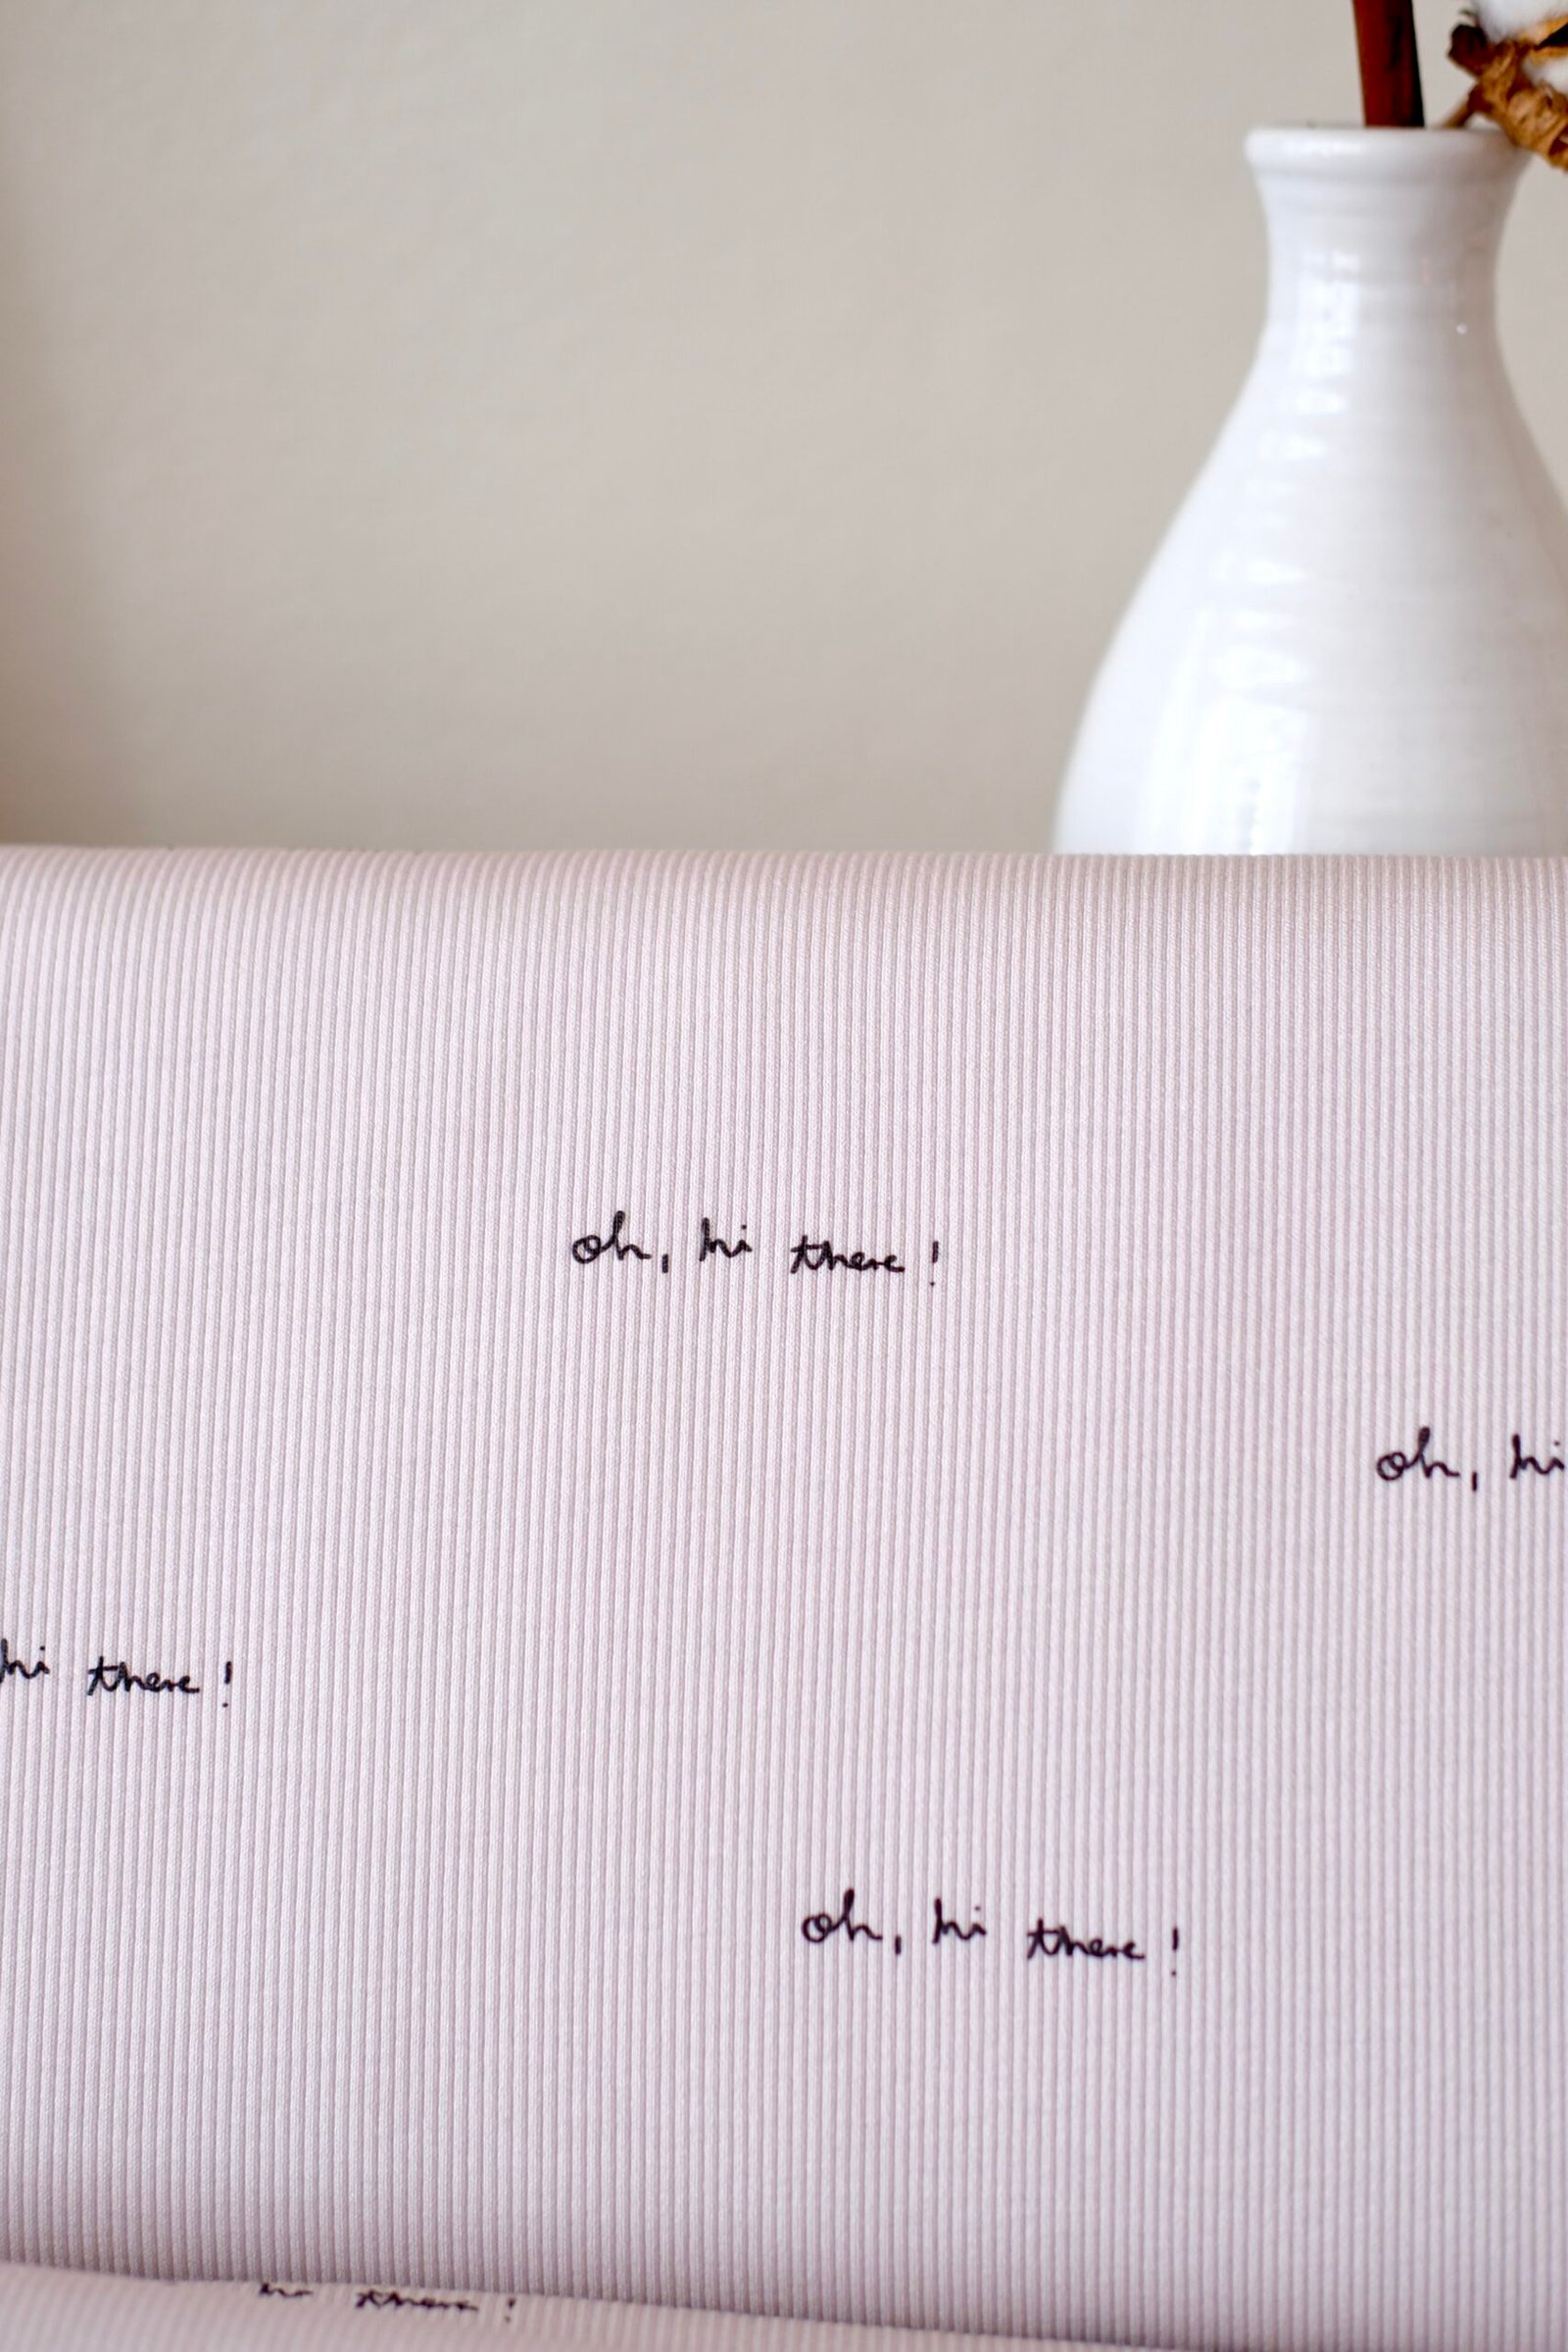 oh, hi there!
oh, hi
hi there!
oh, hi there!
hi there!